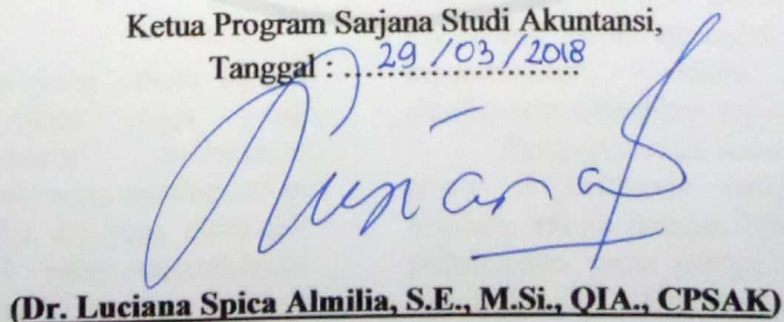 Ketua Program Sarjana Studi Akuntansi,
Tanggal : 29 / 03 / 2018
(Dr. Luciana Spica Almilia, S.E., M.Si., QIA., CPSAK)